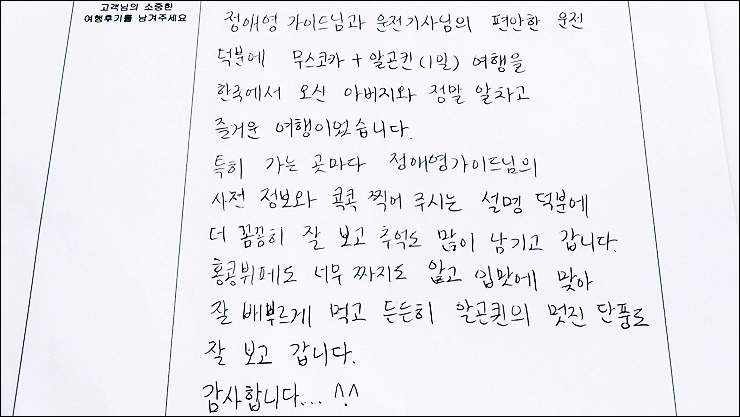 고객님의 소중한
여행후기를 남겨주세요
정애영 가이드님과 운전기사님의 편안한 운전
덕분에 무스코카 + 알곤퀸 (1일) 여행을
한국에서 오신 아버지와 정말 알차고
즐거운 여행이었습니다.
특히 가는 곳마다 정애영가이드님의
사전 정보와 콕콕 찍어 주시는 설명 덕분에
더 꼼꼼히 잘 보고 추억도 많이 남기고 갑니다.
홍콩뷔페도 너무 짜지도 않고 입맛에 맞아
잘 배뿌르게 먹고 든든히 알곤퀸의 멋진 단풍도
잘 보고 갑니다.
감사합니다... ^.^